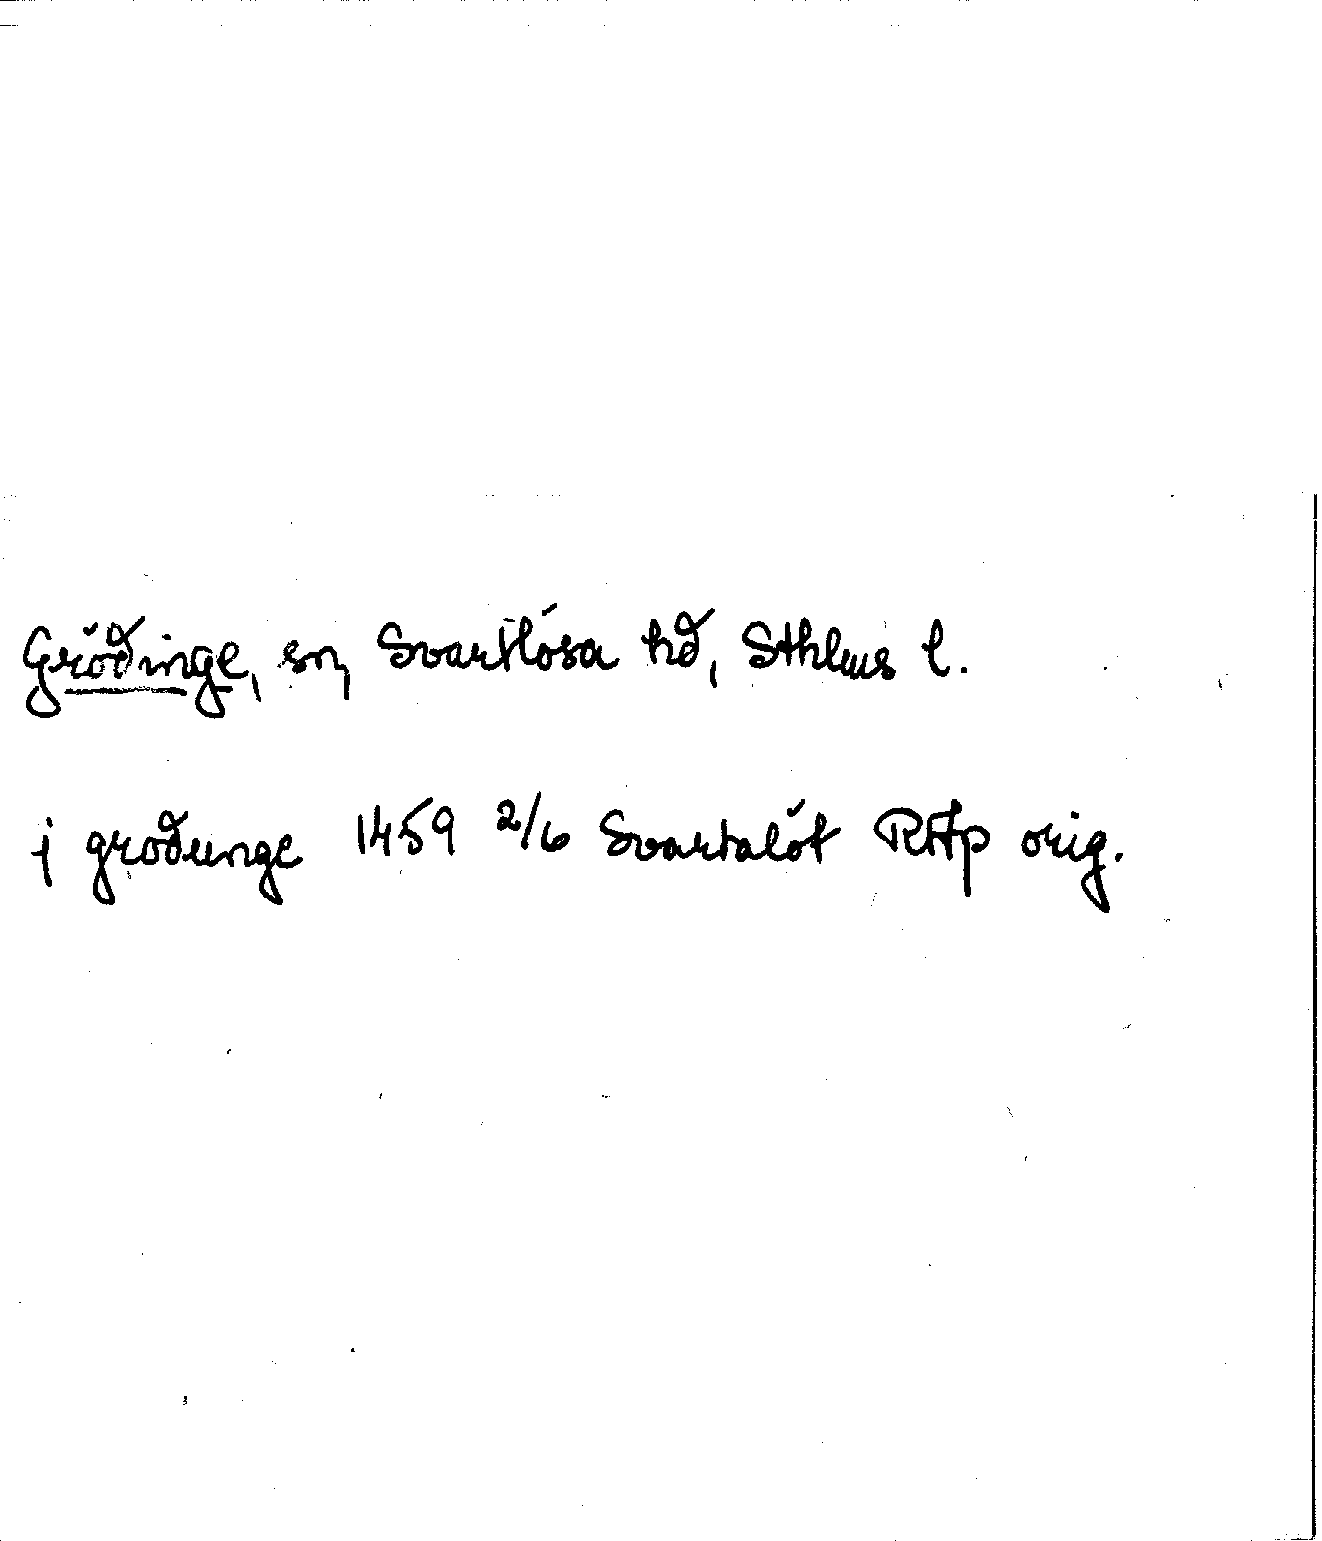 Grödinge, sn, Svartlösa hd, Sthlms l.
j grodunge 1459 2/6 Svartalöt RAp orig.